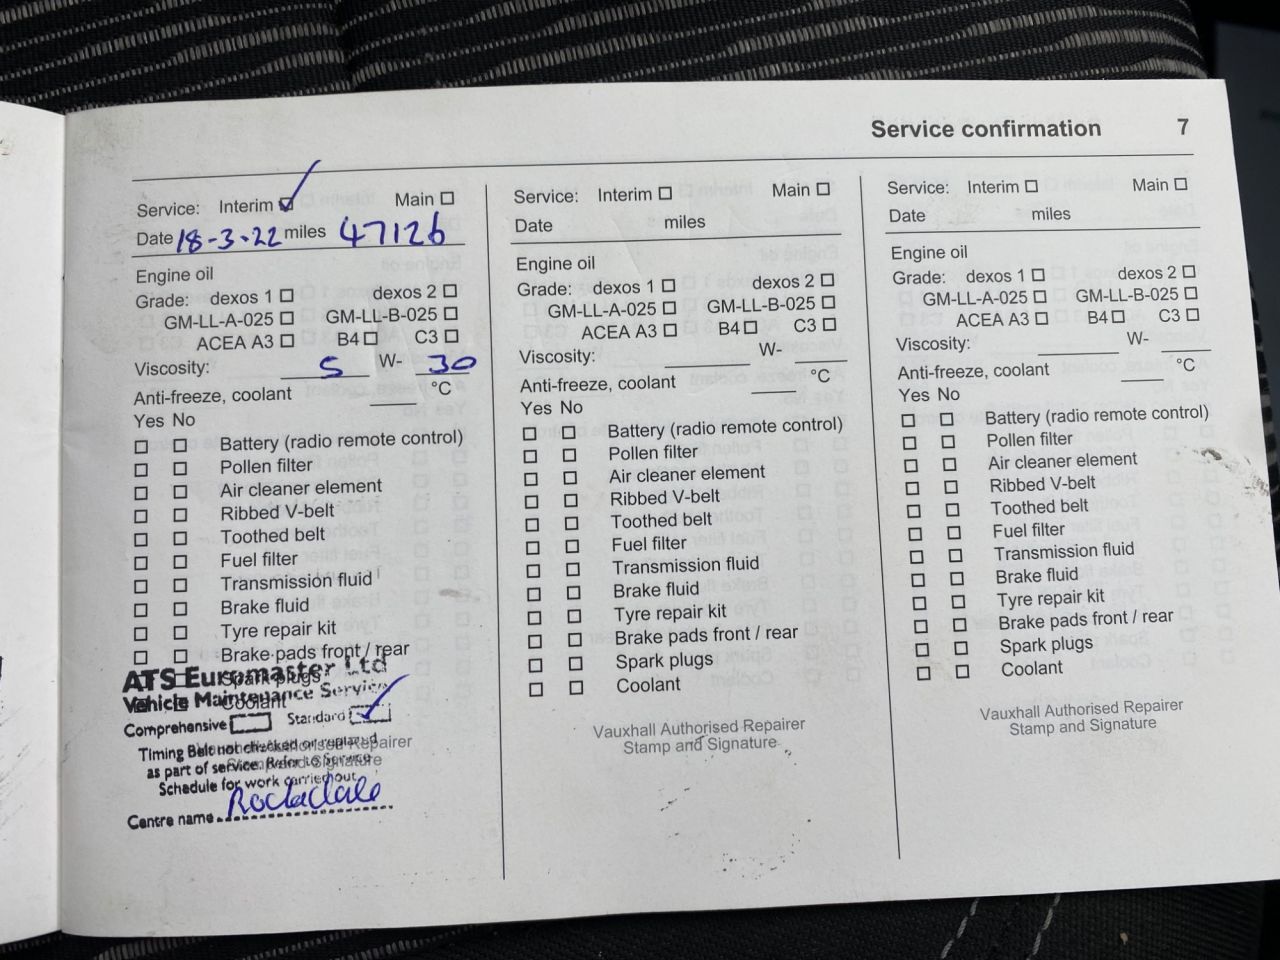 Service confirmation 7
Service: Interim ☑ Main ☐
Date 18-3-22 miles 47126
Engine oil
Grade: dexos 1 ☐ dexos 2 ☐
GM-LL-A-025 ☐ GM-LL-B-025 ☐
ACEA A3 ☐ B4 ☐ C3 ☐
Viscosity: 5 W- 30
Anti-freeze, coolant °C
Yes No
☐ ☐ Battery (radio remote control)
☐ ☐ Pollen filter
☐ ☐ Air cleaner element
☐ ☐ Ribbed V-belt
☐ ☐ Toothed belt
☐ ☐ Fuel filter
☐ ☐ Transmission fluid
☐ ☐ Brake fluid
☐ ☐ Tyre repair kit
☐ ☐ Brake pads front / rear
☐ ☐ Spark plugs
☐ ☐ Coolant
Vauxhall Authorised Repairer
Stamp and Signature
ATS Euromaster Ltd
Vehicle Maintenance Service
Comprehensive ☐ Standard ☑
Timing Belt not checked or replaced
as part of service. Refer to Service
Schedule for work carried out
Centre name Rochdale
Service: Interim ☐ Main ☐
Date miles
Engine oil
Grade: dexos 1 ☐ dexos 2 ☐
GM-LL-A-025 ☐ GM-LL-B-025 ☐
ACEA A3 ☐ B4 ☐ C3 ☐
Viscosity: W-
Anti-freeze, coolant °C
Yes No
☐ ☐ Battery (radio remote control)
☐ ☐ Pollen filter
☐ ☐ Air cleaner element
☐ ☐ Ribbed V-belt
☐ ☐ Toothed belt
☐ ☐ Fuel filter
☐ ☐ Transmission fluid
☐ ☐ Brake fluid
☐ ☐ Tyre repair kit
☐ ☐ Brake pads front / rear
☐ ☐ Spark plugs
☐ ☐ Coolant
Vauxhall Authorised Repairer
Stamp and Signature
Service: Interim ☐ Main ☐
Date miles
Engine oil
Grade: dexos 1 ☐ dexos 2 ☐
GM-LL-A-025 ☐ GM-LL-B-025 ☐
ACEA A3 ☐ B4 ☐ C3 ☐
Viscosity: W-
Anti-freeze, coolant °C
Yes No
☐ ☐ Battery (radio remote control)
☐ ☐ Pollen filter
☐ ☐ Air cleaner element
☐ ☐ Ribbed V-belt
☐ ☐ Toothed belt
☐ ☐ Fuel filter
☐ ☐ Transmission fluid
☐ ☐ Brake fluid
☐ ☐ Tyre repair kit
☐ ☐ Brake pads front / rear
☐ ☐ Spark plugs
☐ ☐ Coolant
Vauxhall Authorised Repairer
Stamp and Signature